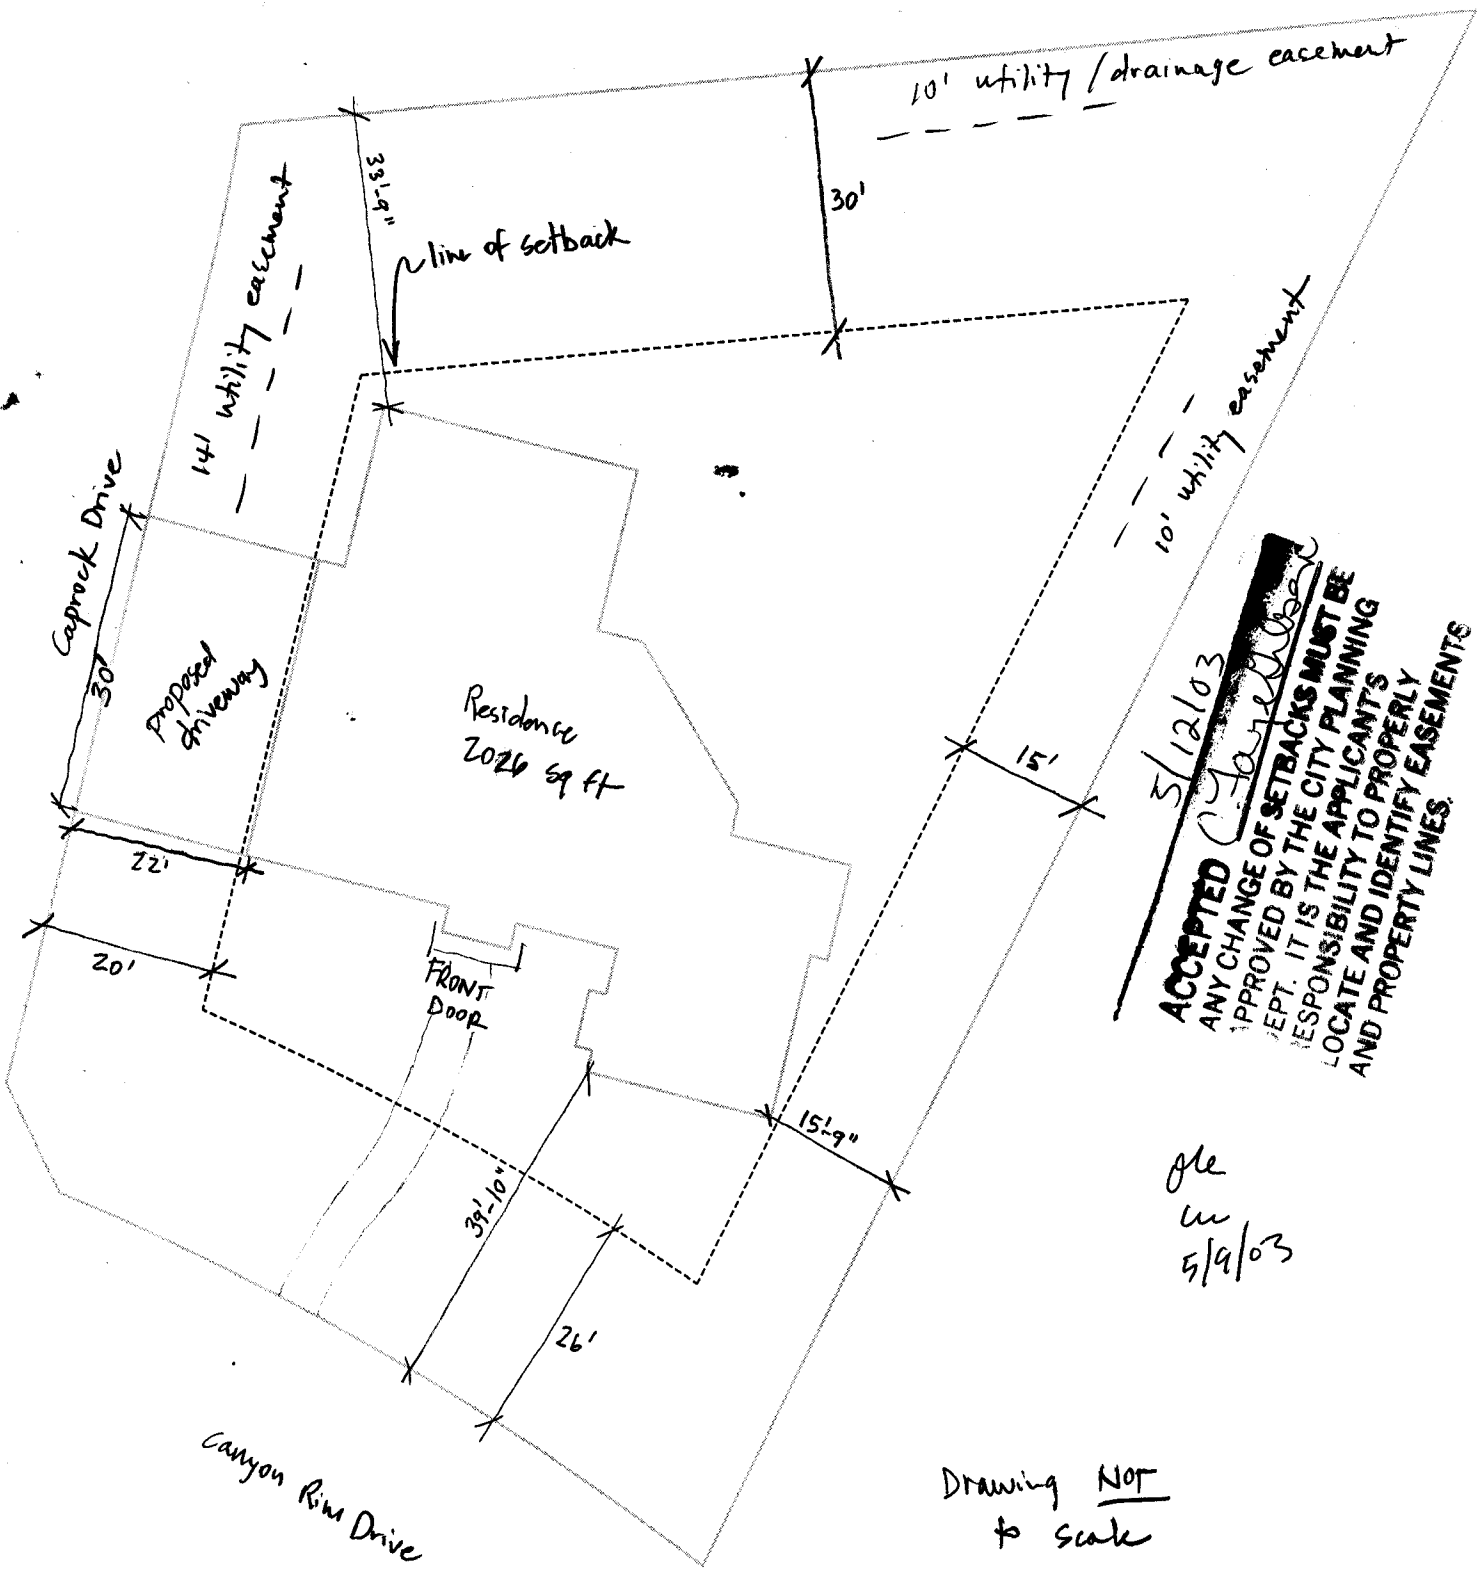 10' utility / drainage easement
33'-9"
30'
line of setback
14' utility easement
10' utility easement
Caprock Drive
30'
proposed
driveway
Residence
2026 sq ft
15'
22'
20'
FRONT
DOOR
15'-9"
39'-10"
26'
Canyon Rim Drive
5/12/03
ACCEPTED
ANY CHANGE OF SETBACKS MUST BE
APPROVED BY THE CITY PLANNING
EPT. IT IS THE APPLICANT'S
RESPONSIBILITY TO PROPERLY
LOCATE AND IDENTIFY EASEMENTS
AND PROPERTY LINES.
5/9/03
Drawing NOT
to scale